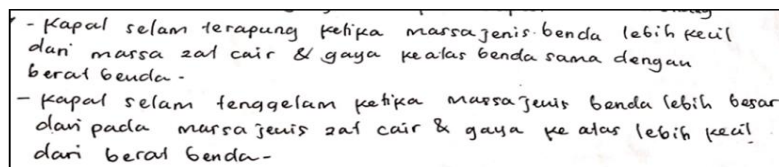 - Kapal selam terapung ketika massa jenis benda lebih kecil
dari massa zat cair & gaya keatas benda sama dengan
berat benda -
- Kapal selam tenggelam ketika massa jenis benda lebih besar
dari pada massa jenis zat cair & gaya ke atas lebih kecil
dari berat benda -